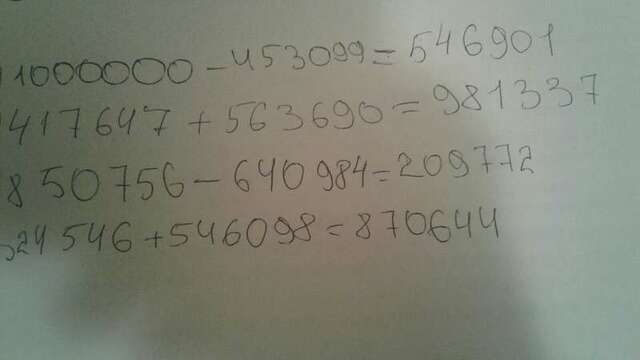 1000000 - 453099 = 546901
417647 + 563690 = 981337
850756 - 640984 = 209772
324546 + 546098 = 870644